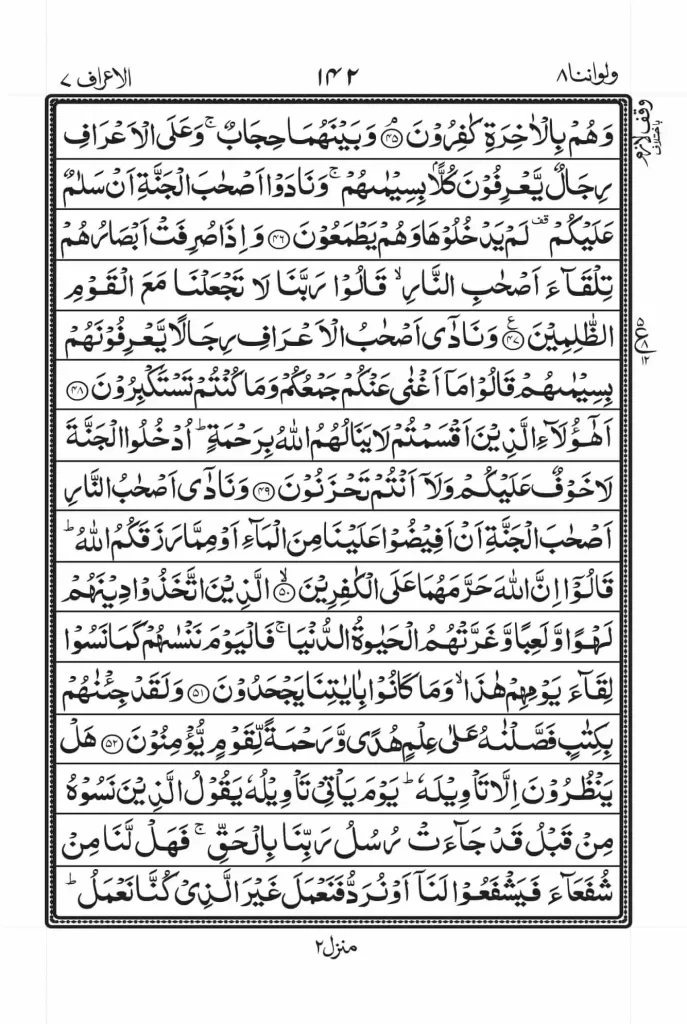 ولواننا ۸
۱۴۲
الاعراف ۷
وقف لازم
باختلاف
وَهُمْ بِالْاٰخِرَةِ كٰفِرُوْنَ ﴿۴۵﴾ۘ وَبَيْنَهُمَا حِجَابٌ ۚ وَعَلَى الْاَعْرَافِ
رِجَالٌ يَّعْرِفُوْنَ كُلًّاۢ بِسِيْمٰىهُمْ ۚ وَنَادَوْا اَصْحٰبَ الْجَنَّةِ اَنْ سَلٰمٌ
عَلَيْكُمْ ۟ قف لَمْ يَدْخُلُوْهَا وَهُمْ يَطْمَعُوْنَ ﴿۴۶﴾ وَاِذَا صُرِفَتْ اَبْصَارُهُمْ
تِلْقَآءَ اَصْحٰبِ النَّارِ ۙ قَالُوْا رَبَّنَا لَا تَجْعَلْنَا مَعَ الْقَوْمِ
الظّٰلِمِيْنَ ﴿۴۷﴾ ع وَنَادٰٓى اَصْحٰبُ الْاَعْرَافِ رِجَالًا يَّعْرِفُوْنَهُمْ
بِسِيْمٰىهُمْ قَالُوْا مَاۤ اَغْنٰى عَنْكُمْ جَمْعُكُمْ وَمَا كُنْتُمْ تَسْتَكْبِرُوْنَ ﴿۴۸﴾
اَهٰٓؤُلَآءِ الَّذِيْنَ اَقْسَمْتُمْ لَا يَنَالُهُمُ اللّٰهُ بِرَحْمَةٍ ؕ اُدْخُلُوا الْجَنَّةَ
لَا خَوْفٌ عَلَيْكُمْ وَلَاۤ اَنْتُمْ تَحْزَنُوْنَ ﴿۴۹﴾ وَنَادٰٓى اَصْحٰبُ النَّارِ
اَصْحٰبَ الْجَنَّةِ اَنْ اَفِيْضُوْا عَلَيْنَا مِنَ الْمَآءِ اَوْ مِمَّا رَزَقَكُمُ اللّٰهُ ؕ
قَالُوْۤا اِنَّ اللّٰهَ حَرَّمَهُمَا عَلَى الْكٰفِرِيْنَ ﴿۵۰﴾ۙ الَّذِيْنَ اتَّخَذُوْا دِيْنَهُمْ
لَهْوًا وَّلَعِبًا وَّغَرَّتْهُمُ الْحَيٰوةُ الدُّنْيَا ۚ فَالْيَوْمَ نَنْسٰىهُمْ كَمَا نَسُوْا
لِقَآءَ يَوْمِهِمْ هٰذَا ۙ وَمَا كَانُوْا بِاٰيٰتِنَا يَجْحَدُوْنَ ﴿۵۱﴾ وَلَقَدْ جِئْنٰهُمْ
بِكِتٰبٍ فَصَّلْنٰهُ عَلٰى عِلْمٍ هُدًى وَّرَحْمَةً لِّقَوْمٍ يُّؤْمِنُوْنَ ﴿۵۲﴾ هَلْ
يَنْظُرُوْنَ اِلَّا تَاْوِيْلَهٗ ؕ يَوْمَ يَاْتِيْ تَاْوِيْلُهٗ يَقُوْلُ الَّذِيْنَ نَسُوْهُ
مِنْ قَبْلُ قَدْ جَآءَتْ رُسُلُ رَبِّنَا بِالْحَقِّ ۚ فَهَلْ لَّنَا مِنْ
شُفَعَآءَ فَيَشْفَعُوْا لَنَاۤ اَوْ نُرَدُّ فَنَعْمَلَ غَيْرَ الَّذِيْ كُنَّا نَعْمَلُ ؕ
منزل ۲